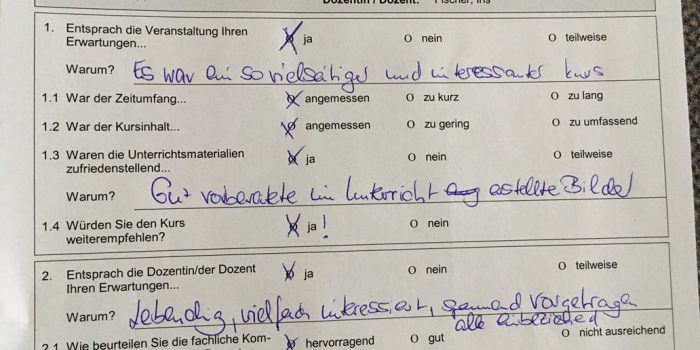 Dozentin / Dozent: Fischer, Iris
1. Entsprach die Veranstaltung Ihren Erwartungen... ja O nein O teilweise
Warum? Es war ein so vielseitiger und interessanter Kurs
1.1 War der Zeitumfang... angemessen O zu kurz O zu lang
1.2 War der Kursinhalt... angemessen O zu gering O zu umfassend
1.3 Waren die Unterrichtsmaterialien zufriedenstellend... ja O nein O teilweise
Warum? Gut vorbereitete im Unterricht estellte Bilder
1.4 Würden Sie den Kurs weiterempfehlen? ja! O nein
2. Entsprach die Dozentin/der Dozent Ihren Erwartungen... ja O nein O teilweise
Warum? Lebendig, vielfach interessiert, spannend vorgetragen
alle einbeziehend
2.1 Wie beurteilen Sie die fachliche Kom- hervorragend O gut O nicht ausreichend